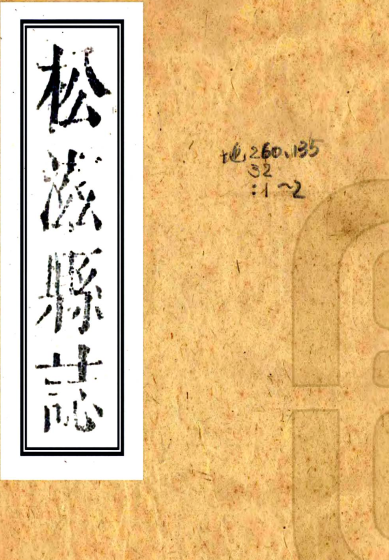 松滋縣誌
地260.135
32
:1~2